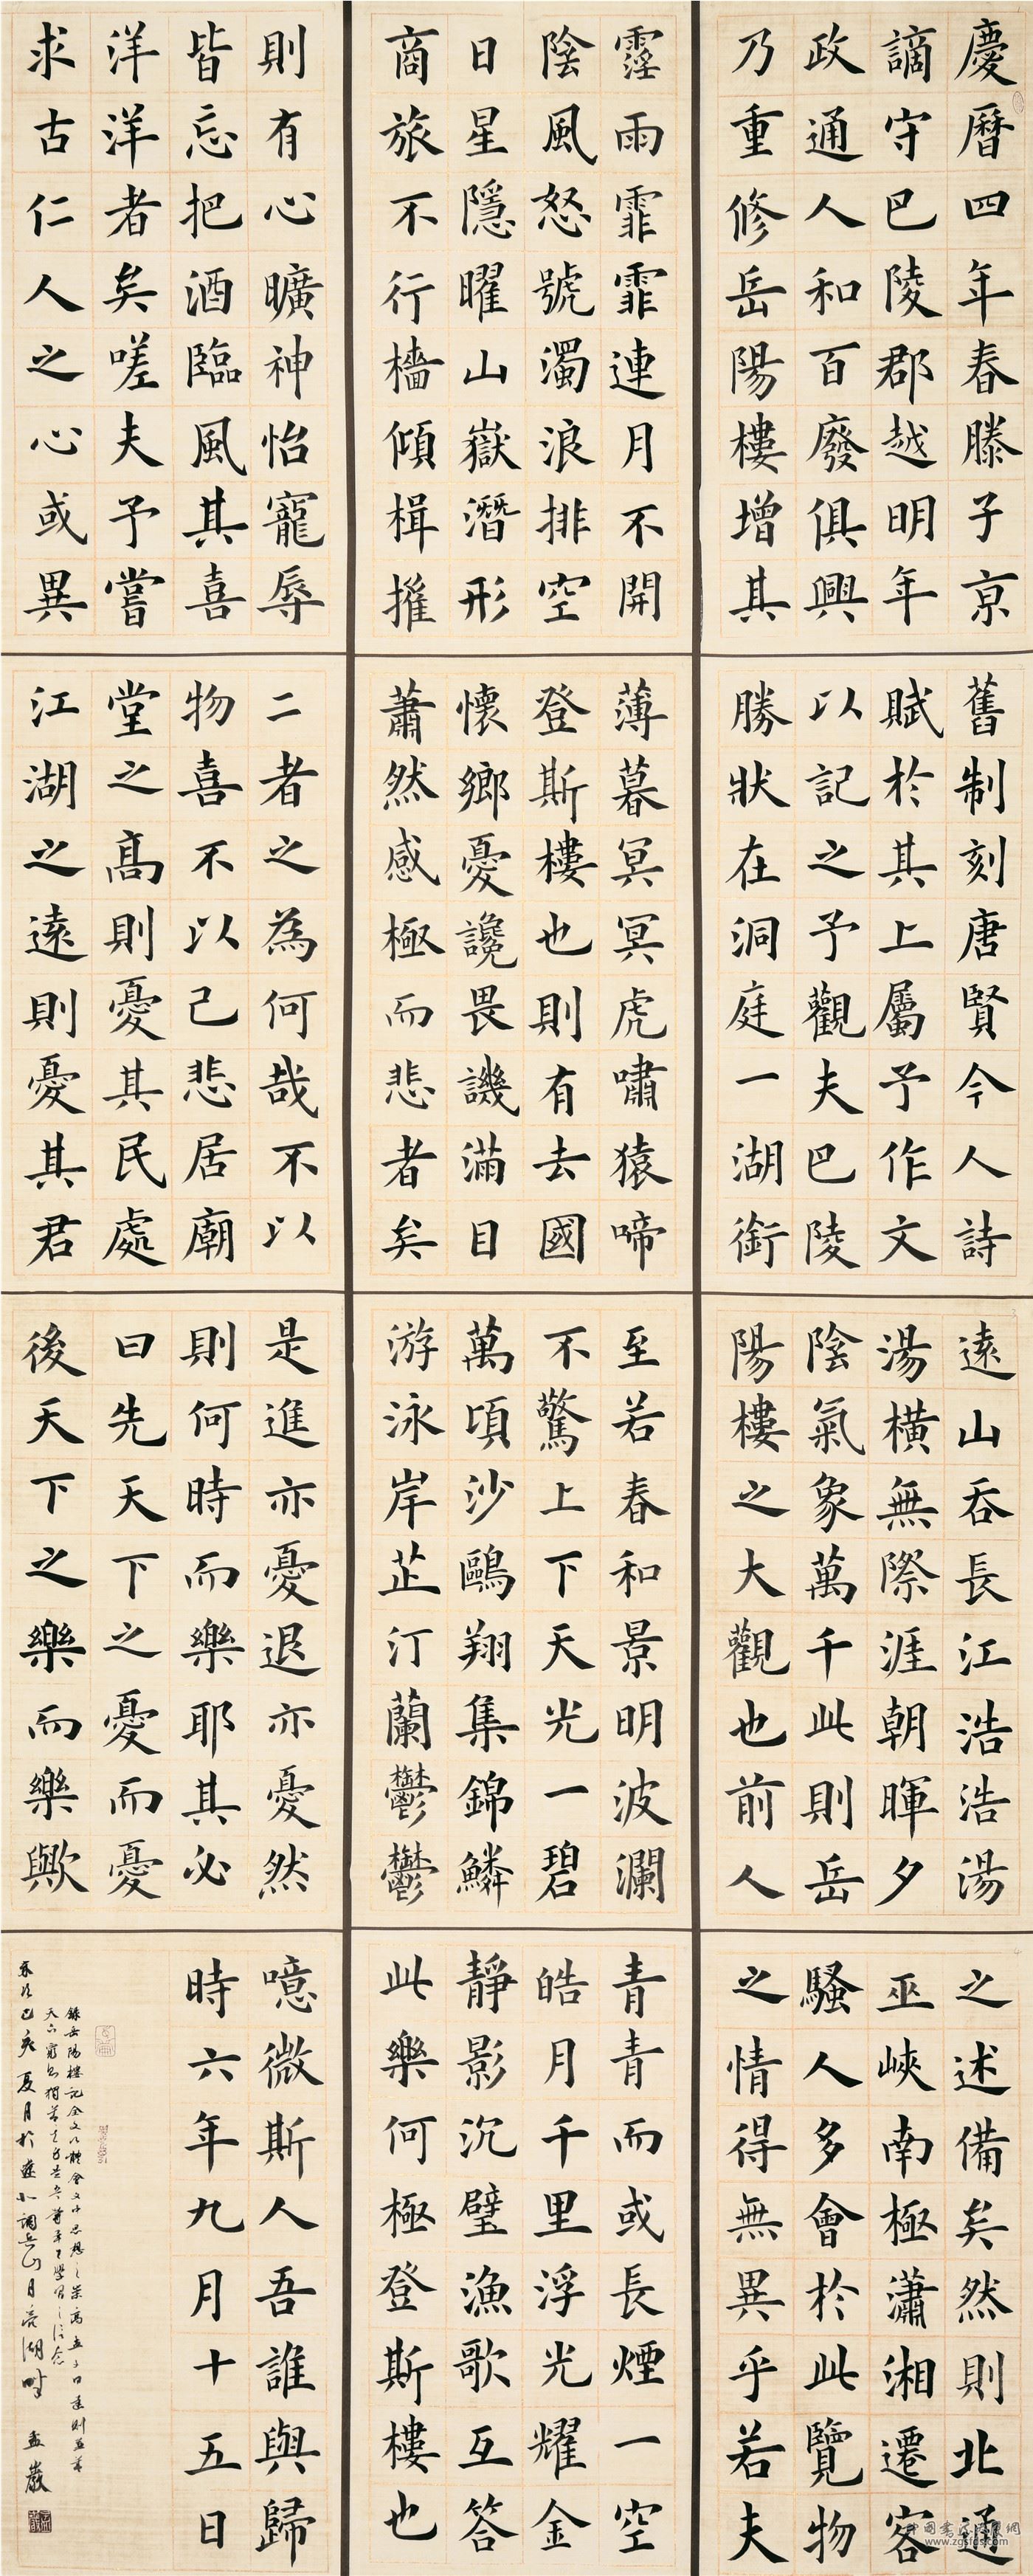 慶曆四年春滕子京
謫守巴陵郡越明年
政通人和百廢俱興
乃重修岳陽樓增其
舊制刻唐賢今人詩
賦於其上屬予作文
以記之予觀夫巴陵
勝狀在洞庭一湖銜
遠山吞長江浩浩湯
湯橫無際涯朝暉夕
陰氣象萬千此則岳
陽樓之大觀也前人
之述備矣然則北通
巫峽南極瀟湘遷客
騷人多會於此覽物
之情得無異乎若夫
霪雨霏霏連月不開
陰風怒號濁浪排空
日星隱曜山嶽潛形
商旅不行檣傾楫摧
薄暮冥冥虎嘯猿啼
登斯樓也則有去國
懷鄉憂讒畏譏滿目
蕭然感極而悲者矣
至若春和景明波瀾
不驚上下天光一碧
萬頃沙鷗翔集錦鱗
游泳岸芷汀蘭鬱鬱
青青而或長煙一空
皓月千里浮光耀金
靜影沉璧漁歌互答
此樂何極登斯樓也
則有心曠神怡寵辱
皆忘把酒臨風其喜
洋洋者矣嗟夫予嘗
求古仁人之心或異
二者之為何哉不以
物喜不以己悲居廟
堂之高則憂其民處
江湖之遠則憂其君
是進亦憂退亦憂然
則何時而樂耶其必
曰先天下之憂而憂
後天下之樂而樂歟
噫微斯人吾誰與歸
時六年九月十五日
錄岳陽樓記全文以體會文中思想之崇高
己亥夏月於
月亮湖畔
www.zgsfds.com